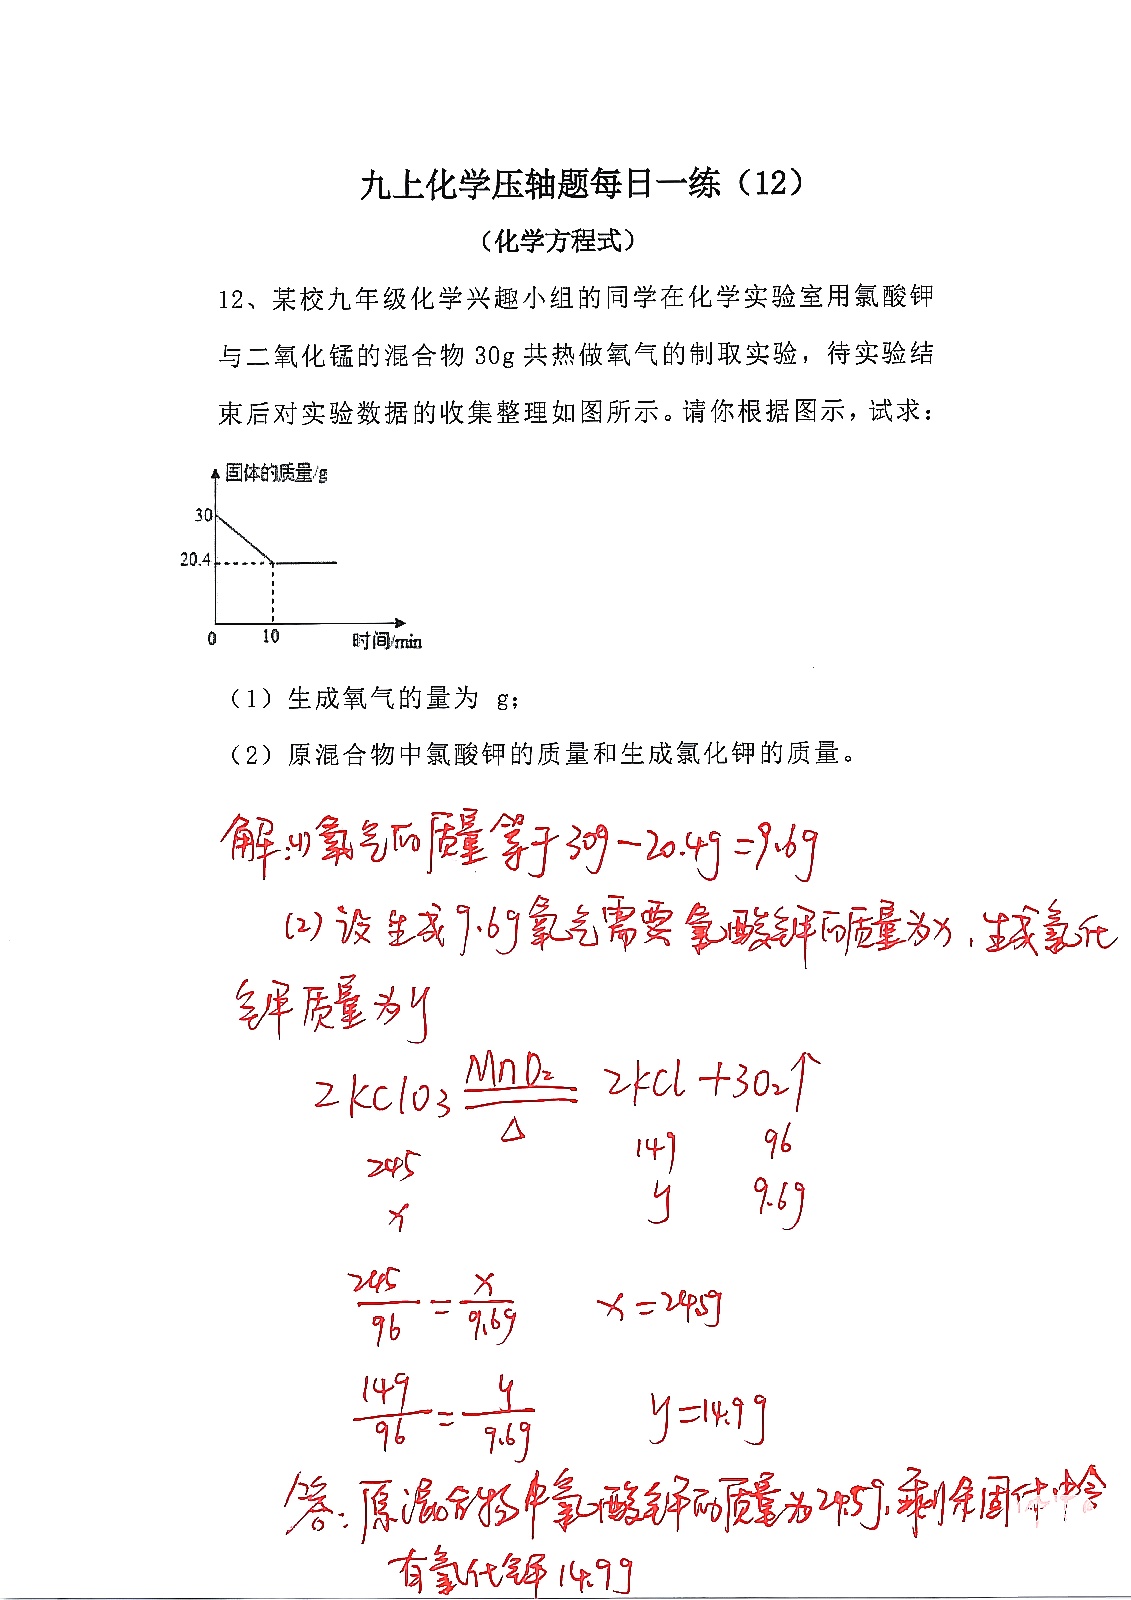 九上化学压轴题每日一练（12）
（化学方程式）
12、某校九年级化学兴趣小组的同学在化学实验室用氯酸钾
与二氧化锰的混合物 30g 共热做氧气的制取实验，待实验结
束后对实验数据的收集整理如图所示。请你根据图示，试求：
固体的质量/g
30
20.4
0 10 时间/min
（1）生成氧气的量为 g；
（2）原混合物中氯酸钾的质量和生成氯化钾的质量。
解：(1)氧气的质量等于30g－20.4g＝9.6g
(2)设生成9.6g氧气需要氯酸钾的质量为x，生成氯化
钾质量为y
2KClO3 MnO2 △ 2KCl+3O2↑
245 149 96
x y 9.6g
245/96 = x/9.6g x=24.5g
149/96 = y/9.6g y=14.9g
答：原混合物中氯酸钾的质量为24.5g，剩余固体中含
有氯化钾14.9g